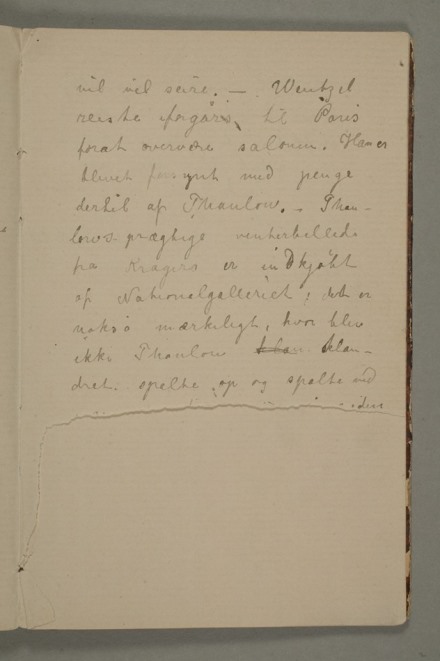 vil vel seire. — Wentzel
reiste forgårs, til Paris
forat overvære salonen. Han er
blevet forsynt med penge
dertil af Thaulow. – Thau-
lows prægtige vinterbillede
fra Kragerø er indkjøbt
af Nationalgalleriet; det er
nokså mærkeligt, hvor blev
ikke Thaulow klan-
dret. spelte op og spelte ned
iden